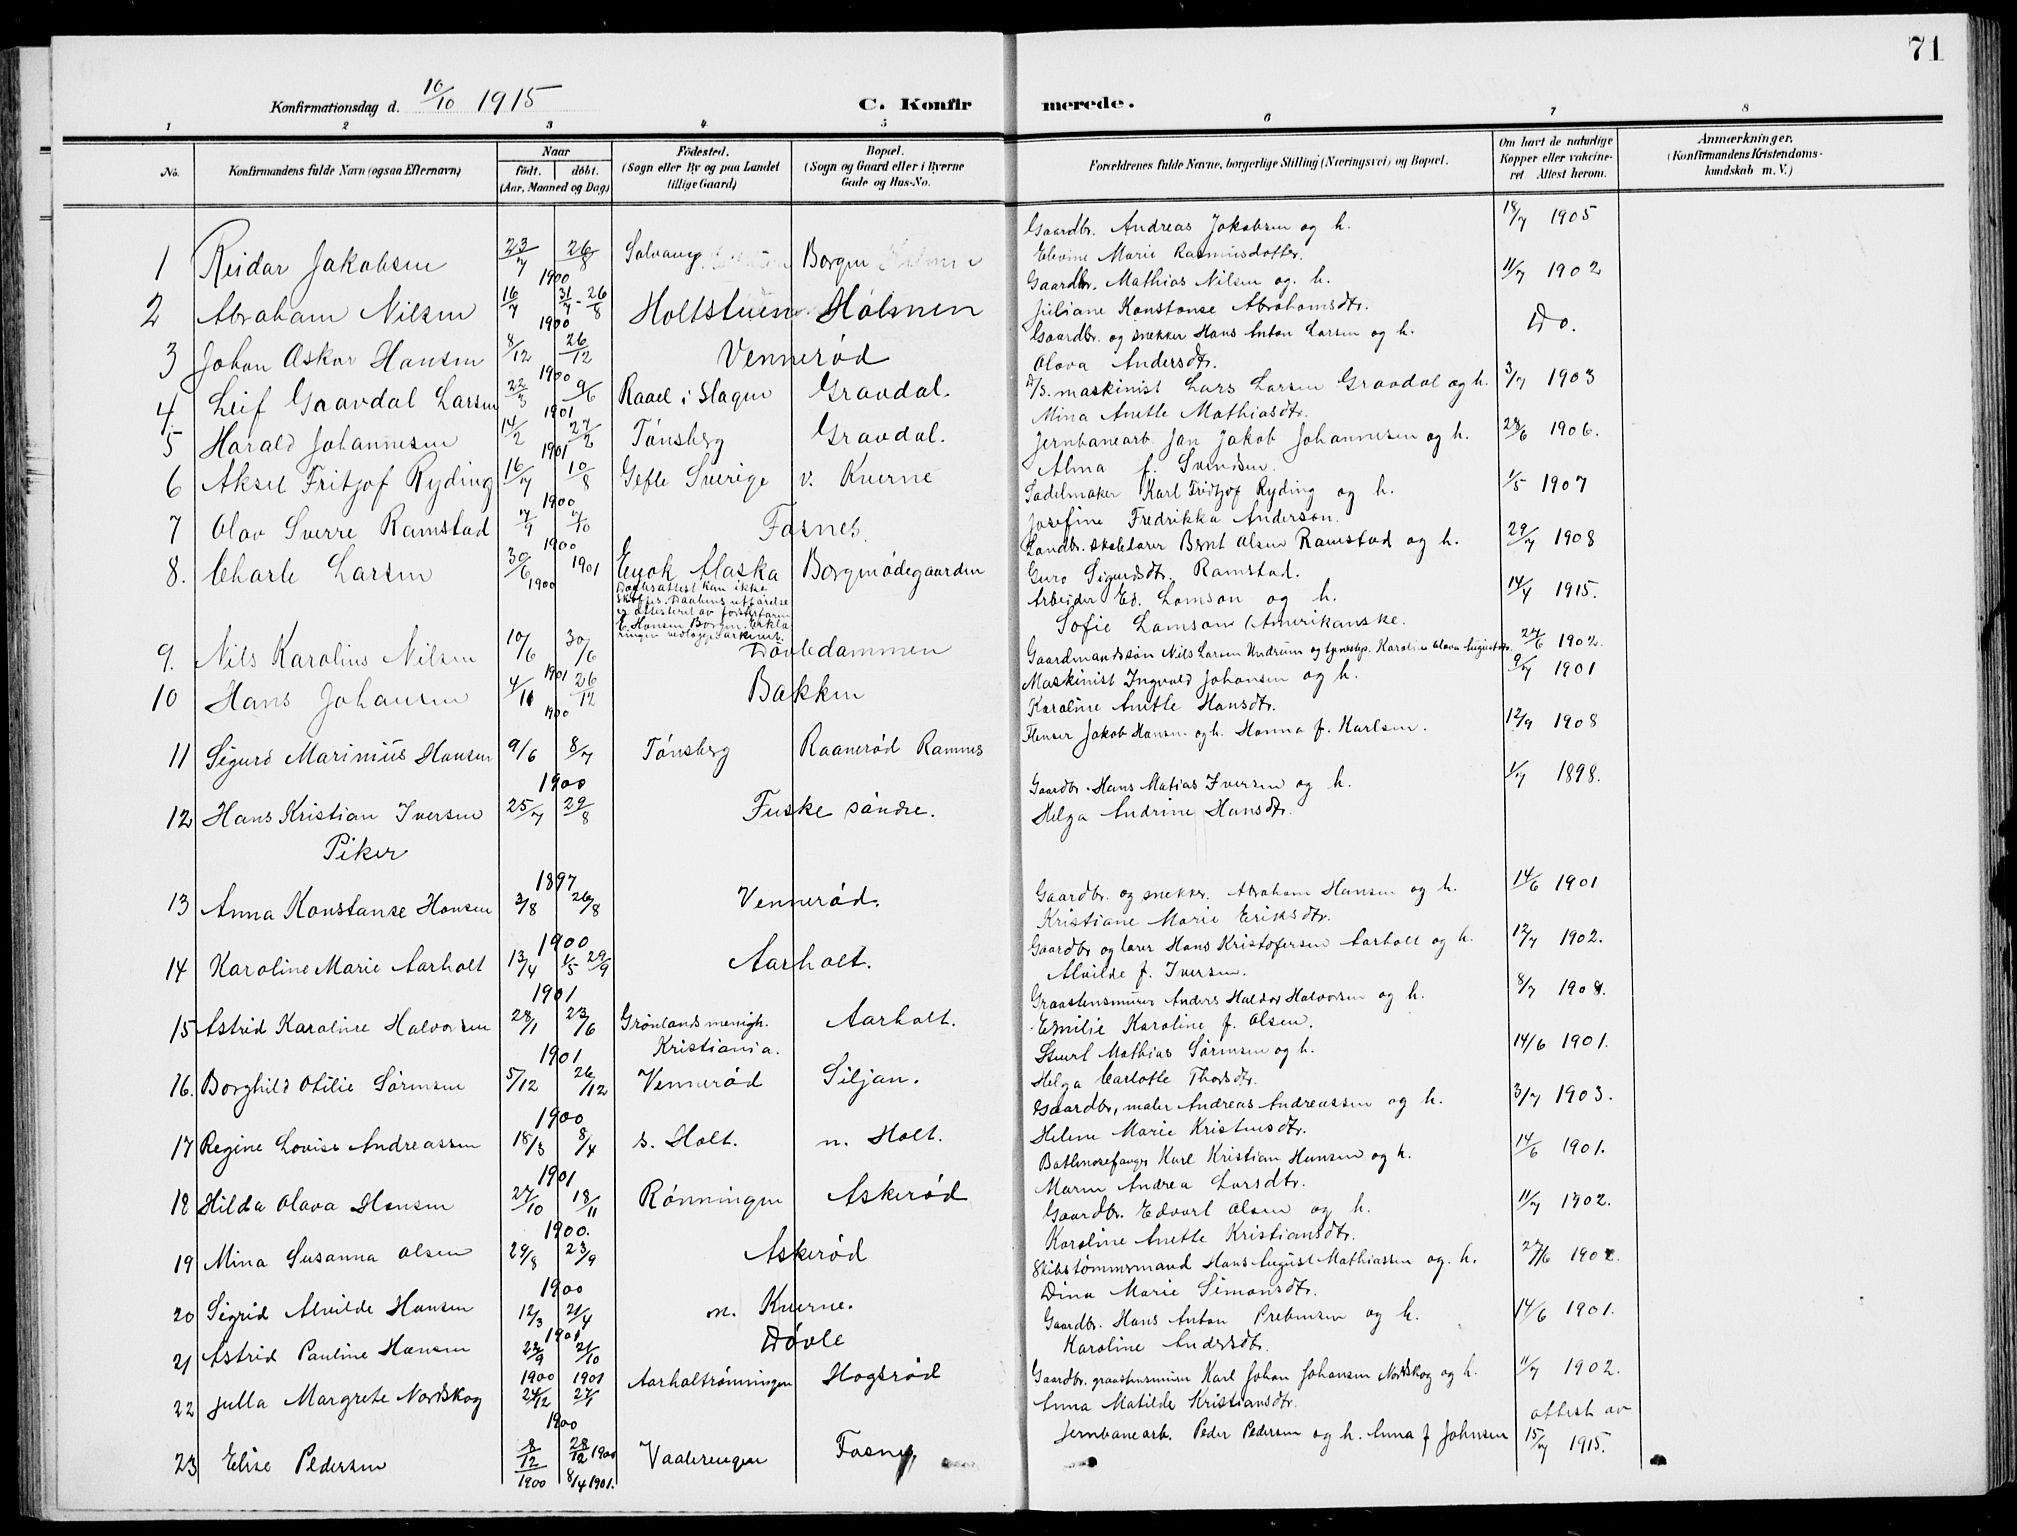 71
Konfirmationsdag d. 10/10 1915
C. Konfirmerede.
1 2 3 4 5 6 7 8
No.
Konfirmandens fulde Navn (ogsaa Efternavn).
Naar
født. døbt.
(Aar, Maaned og Dag)
Fødested.
(Sogn eller By og paa Landet
tillige Gaard)
Bopæl.
(Sogn og Gaard eller i Byerne
Gade og Hus-No.
Forældrenes fulde Navne, borgerlige Stilling (Næringsvei) og Bopæl.
Om havt de naturlige
Kopper eller vaccine-
ret Attest herom.
Anmærkninger.
(Konfirmandens Kristendoms-
kundskab m. V.)
1 Reidar Jakobsen 23/7 26/8 Solvang Borgen Gaardbr. Andreas Jakobsen og h. 18/7 1905
Elevine Marie Rasmusdotter.
1900
2 Abraham Nilsen 16/7 31/7 - 26/8 Holtstuen Holmen Gaardbr. Mathias Nilsen og h. 11/7 1902
Juliane Konstanse Abrahamsdtr.
1900
3 Johan Oskar Hansen 8/12 26/12 Vennerød Gaardbr. og snekker Hans Anton Larsen og h. Do.
Olava Andersdtr.
1900
4. Leif Gravdal Larsen 22/3 9/6 Raael i Slagen Gravdal. D/S. maskinist Lars Larsen Gravdal og h. 3/7 1903
Mina Anette Mathiasdtr.
1901
5 Harald Johannesen 14/2 27/2 Tønsberg Gravdal. Jernbanearb. Jan Jakob Johannesen og h. 28/6 1906.
Alma f. Svendsen.
1901
6 Aksel Fritjof Ryding 16/7 10/8 Gefle Sverige v. Kverne Sadelmaker Karl Fridtjof Ryding og h. 1/5 1907
Josefine Fredrikka Anderson.
1900
7 Olav Sverre Ramstad 17/9 17/10 Fosnes. Landbr. skolelærer Bernt Olsen Ramstad og h. 29/7 1908
Guro Sigurdsdtr. Ramstad.
1900
8. Charle Larsen 30/6 1900 1901 Eyok Alaska Borgenødegaarden Arbeider Ed. Lamson og h. 14/4 1915.
Sofie Lamson (Amerikanske.
Daabsattest kan ikke
skaffes. Daabens utførelse
er attesteret av fosterfaren
E. Hansen Borgen. Erklæ
ringen vedlagt arkivet.
9. Nils Karolius Nilsen 10/6 30/6 Døvledammen Gaardmandssøn Nils Larsen Undrum og tjenestep. Karoline Olava Augustdtr. 27/6 1902.
1901
10 Hans Johansen 4/11 26/12 Bakken Maskinist Ingvald Johansen og h. 9/7 1901
Karoline Anette Hansdtr.
1900
11 Sigurd Marinius Hansen 9/6 8/7 Tønsberg Raanerød Ramnes Flenser Jakob Hansen og h. Hanna f. Karlsen. 12/9 1908
1900
12 Hans Kristian Iversen 25/7 29/8 Fuske søndre. Gaardbr. Hans Matias Iversen og h. 1/7 1898.
Helga Andrine Hansdtr.
Piker
1897
13 Anna Konstanse Hansen 3/8 26/8 Vennerød. Gaardbr. og snekker. Abraham Hansen og h. 14/6 1901
Kristiane Marie Eriksdtr.
1900
14 Karoline Marie Aarholt 13/4 1/5 29/9 Aarholt. Gaardbr og lærer Hans Kristofersen Aarholt og h. 12/7 1902.
Alvilde f. Iversen.
1901
15 Astrid Karoline Halvorsen 28/1 23/6 Grønlands menigh. Kristiania. Aarholt. Graastensmurer Anders Haldor Halvorsen og h. 8/7 1908.
Emilie Karoline f. Olsen.
1901
16. Borghild Otilie Sørensen 5/12 26/12 Vennerød Siljan. Stuert Mathias Sørensen og h. 14/6 1901.
Helga Carlotte Thorsdtr.
1900
17 Regine Lovise Andreassen 18/3 8/4 s. Holt. n. Holt. Gaardbr, maler Andreas Andreassen og h. 3/7 1903.
Helene Marie Kristensdtr.
1901
18 Hilda Olava Hansen 27/10 18/11 Rønningen Askerød Botlenosefanger Karl Kristian Hansen og h. 14/6 1901.
Maren Andrea Larsdtr.
1900.
19 Mina Susanna Olsen 29/8 23/9 Askerød Gaardbr. Edvart Olsen og h. 11/7 1902.
Karoline Anette Kristiansdtr.
1900
20 Sigrid Alvilde Hansen 12/3 21/4 m. Kverne. Skibstømmermand Hans August Mathiassen og h. 27/6 1902.
Dina Marie Simonsdtr.
1901
21 Astrid Pauline Hansen 22/9 21/10 Døvle Gaardbr. Hans Anton Prebensen og h. 14/6 1901.
Karoline Andersdtr.
1900 1901
22 Julla Margrete Nordskog 24/12 27/1 Aarholtrønningen Hogsrød Gaardbr. graastensmurer Karl Johan Johansen Nordskog og h. 11/7 1902.
Anna Matilde Kristiansdtr.
1900
23 Elise Pedersen 8/12 1900 28/12 1900 8/4 1901. Vaalerengen Fosnes Jernbanearb. Peder Pedersen og h. Anna f Johnsen attest av 15/7 1915.